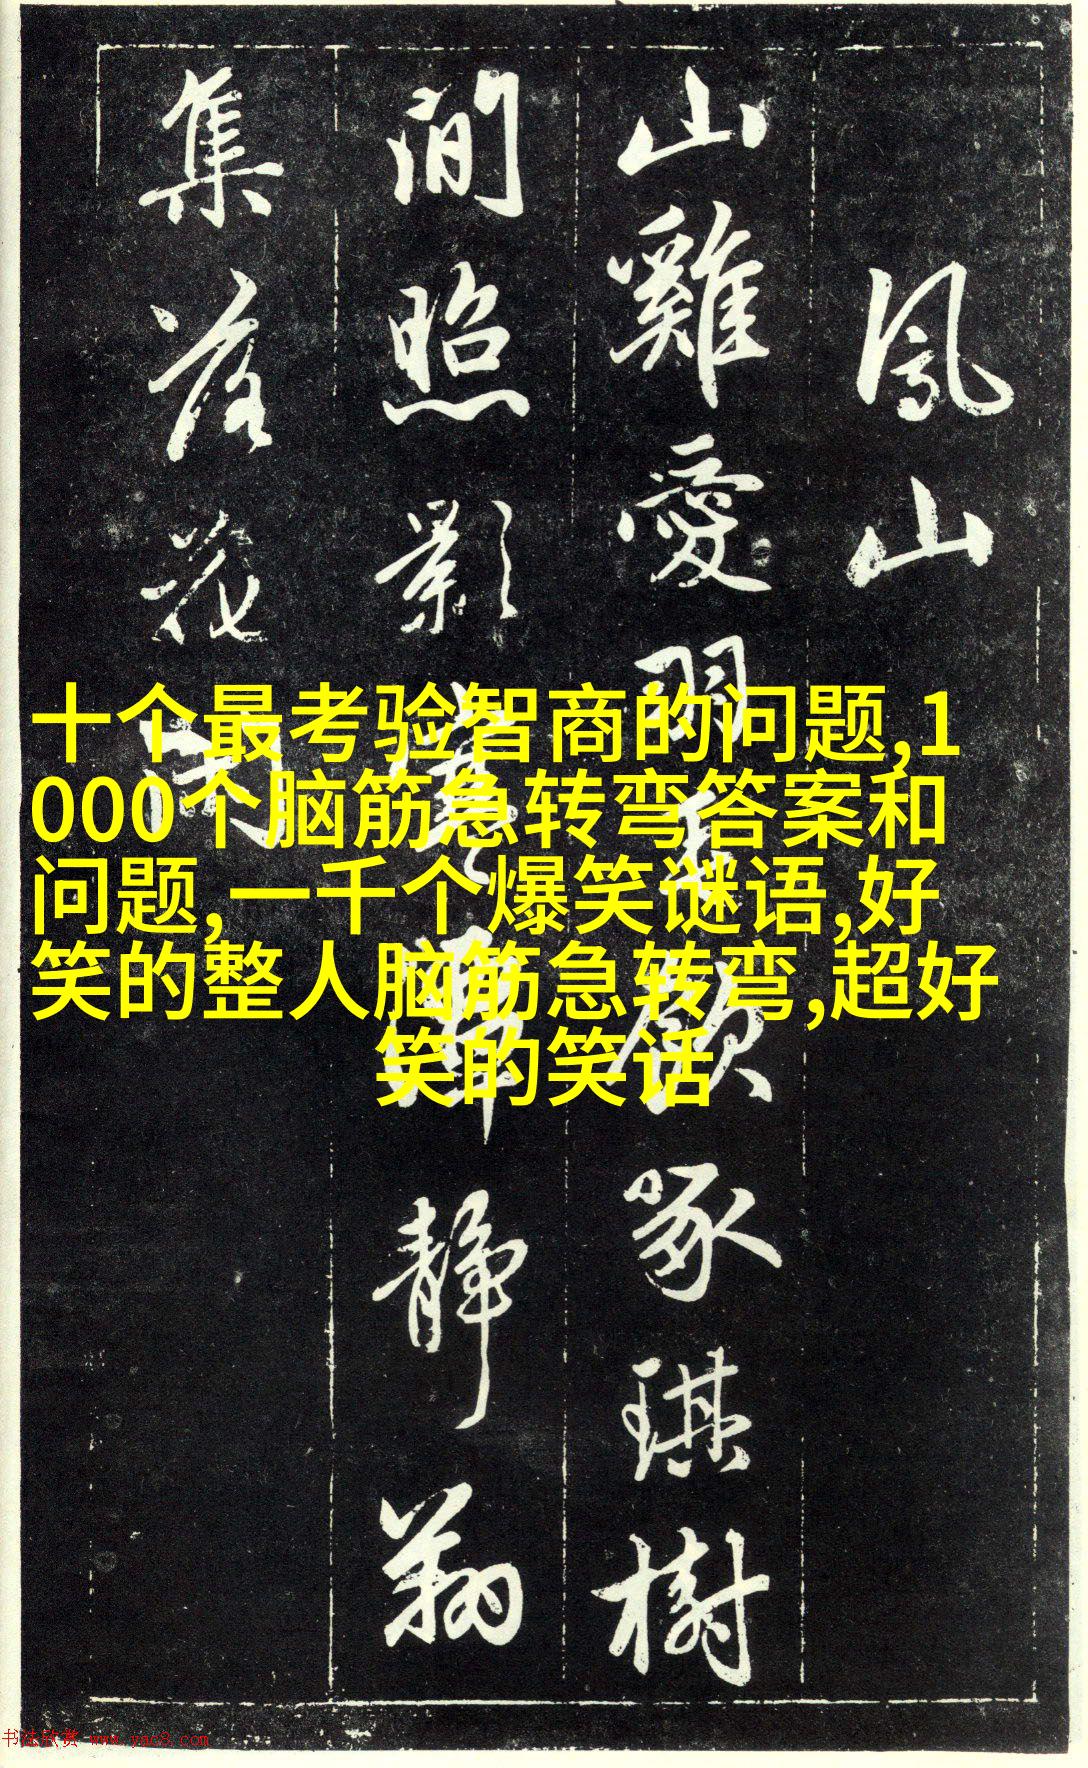 鳳山
山雞愛羽啄琪樹
間照影潭靜翔
集落花
十个最考验智商的问题,1
000个脑筋急转弯答案和
问题,一千个爆笑谜语,好
笑的整人脑筋急转弯,超好
笑的笑话
书法欣赏 www.yac8.com